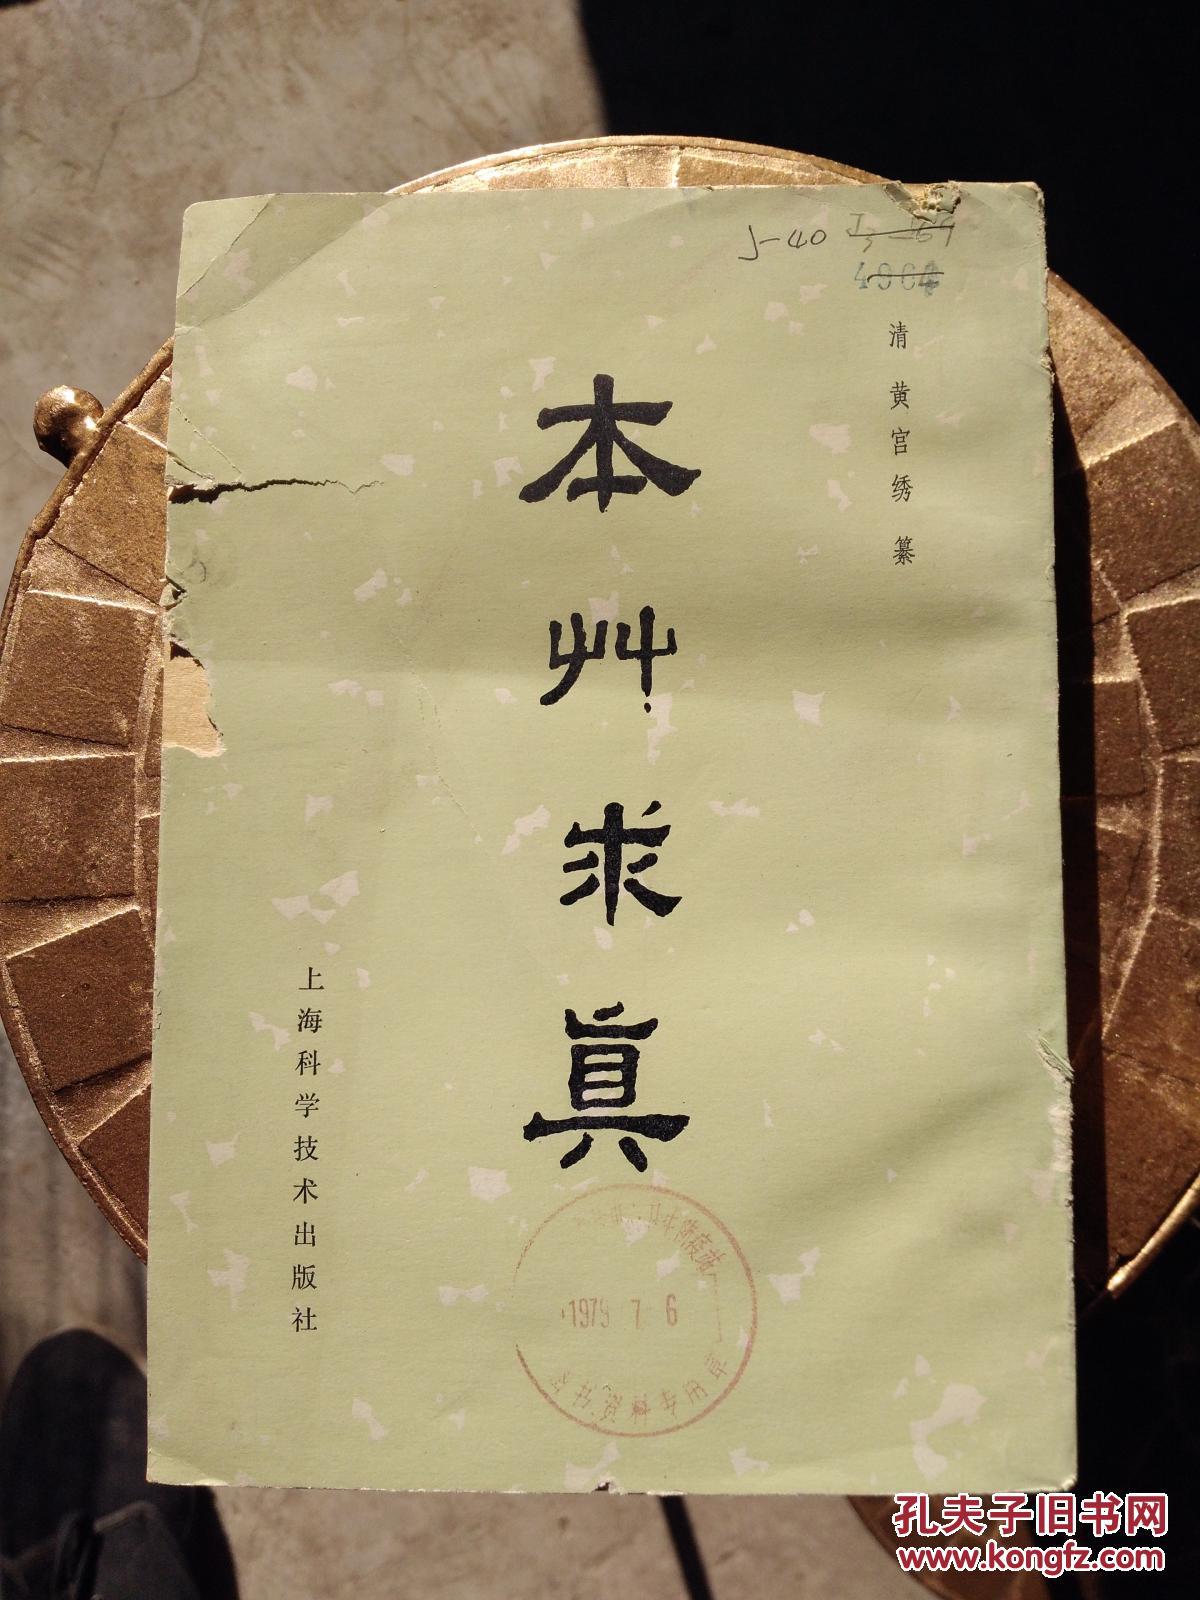 J-40
4964
清 黄宫绣 纂
本艸求真
上海科学技术出版社
防疫站
1979 7 6
资料专用章
孔夫子旧书网
www.kongfz.com